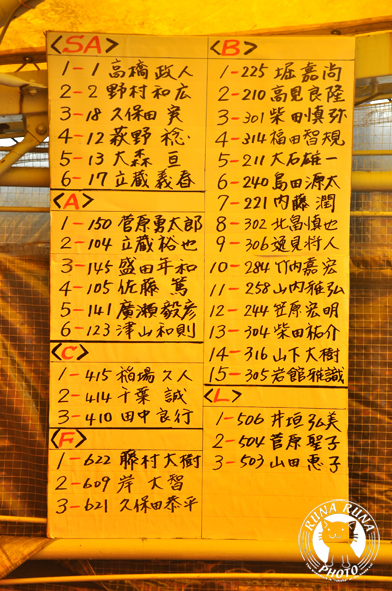 <SA>
1-1 高橋 政人
2-2 野村 和広
3-18 久保田 実
4-12 萩野 稔
5-13 大森 亘
6-17 立蔵 義春
<A>
1-150 菅原勇太郎
2-104 立蔵 裕也
3-145 盛田 年和
4-105 佐藤 篤
5-141 廣瀬 毅彦
6-123 津山 和則
<C>
1-415 稲場 久人
2-414 千葉 誠
3-410 田中 良行
<F>
1-622 藤村 大樹
2-609 岸 大智
3-621 久保田泰平
<B>
1-225 堀 嘉尚
2-210 高見 良隆
3-301 柴田 慎弥
4-314 福田 智規
5-211 大石 雄一
6-240 島田 源太
7-221 内藤 潤
8-302 北畠 慎也
9-306 逸見 将人
10-284 竹内 嘉宏
11-258 山内 雅弘
12-244 笠原 宏明
13-304 柴田 祐介
14-316 山下 大樹
15-305 岩館 雅誠
<L>
1-506 井垣 弘美
2-504 菅原 聖子
3-503 山田 恵子
RUNA RUNA
PHOTO